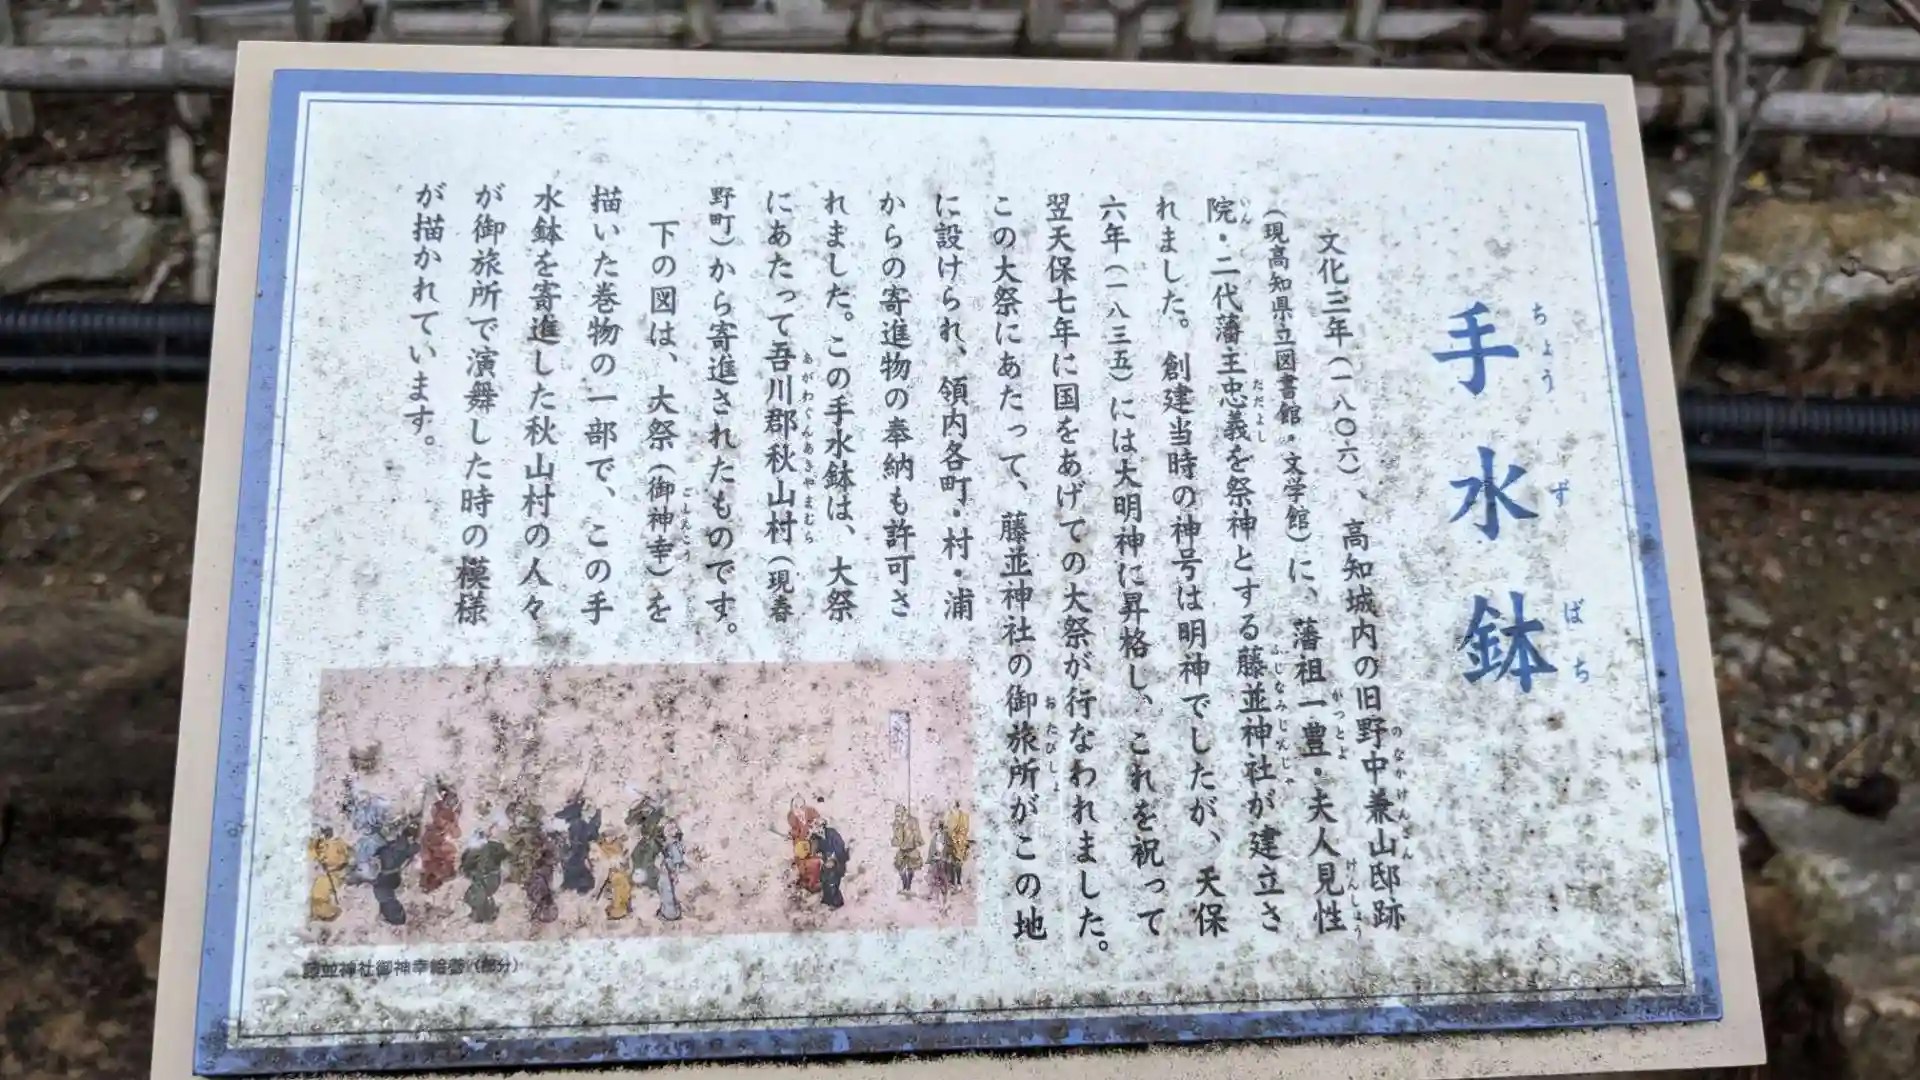 手水鉢
ちょうずばち
文化三年（一八〇六）、高知城内の旧野中兼山邸跡
（現高知県立図書館・文学館）に、藩祖一豊・夫人見性
院・二代藩主忠義を祭神とする藤並神社が建立さ
れました。創建当時の神号は明神でしたが、天保
六年（一八三五）には大明神に昇格し、これを祝って
翌天保七年に国をあげての大祭が行なわれました。
この大祭にあたって、藤並神社の御旅所がこの地
に設けられ、領内各町・村・浦
からの寄進物の奉納も許可さ
れました。この手水鉢は、大祭
にあたって吾川郡秋山村（現春
野町）から寄進されたものです。
下の図は、大祭（御神幸）を
描いた巻物の一部で、この手
水鉢を寄進した秋山村の人々
が御旅所で演舞した時の模様
が描かれています。
藤並神社御神幸絵巻（部分）